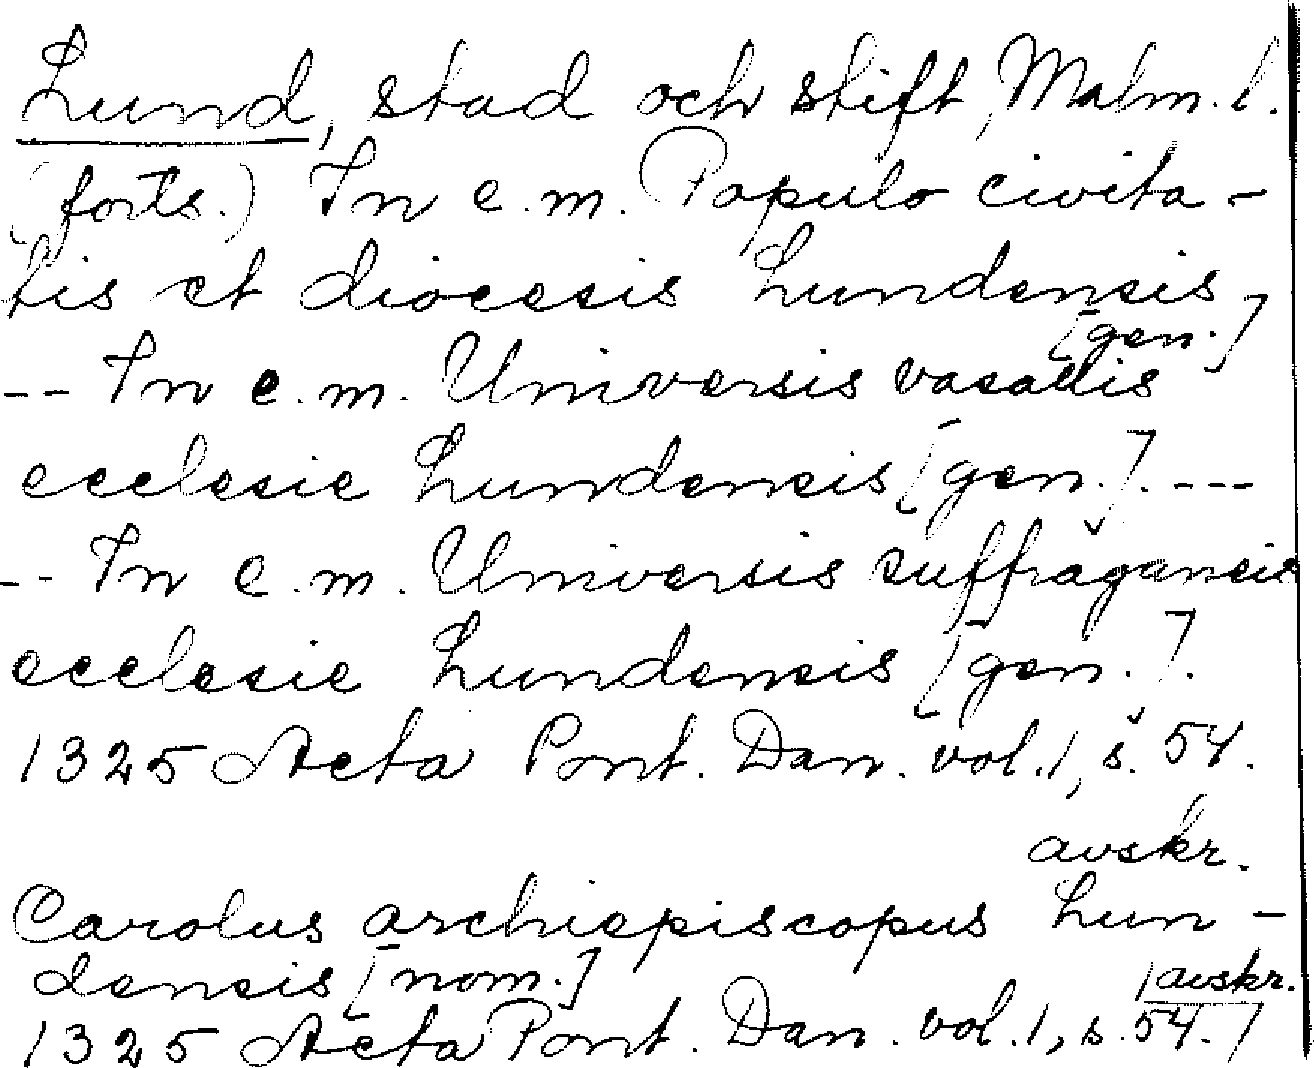 Lund, stad och stift, Malm. l.
(forts.) In e.m. Populo civita-
tis et diocesis Lundensis
[gen.]
-- In e.m. Universis vasallis
ecclesie Lundensis [gen.]. ---
-- In e.m. Universis suffraganeis
ecclesie Lundensis [gen.].
1325 Acta Pont. Dan. vol. 1, s. 54.
avskr.
Carolus archiepiscopus Lun-
densis [nom.]
1325 Acta Pont. Dan. vol. 1, s. 54.
avskr.